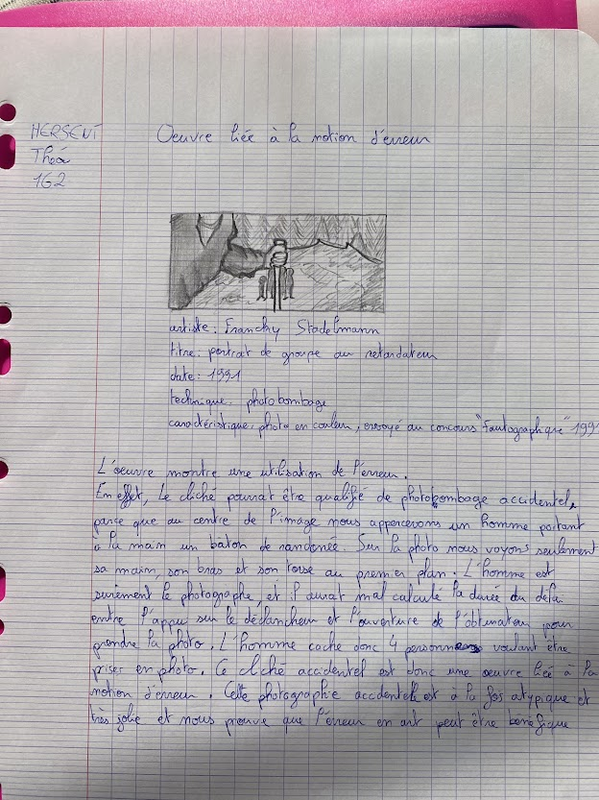 HERSENT
Théa
1G2
Oeuvre liée à la notion d'erreur
artiste: Franchy Stadelmann
titre: portrait de groupe au retardateur
date: 1991
technique: photobombage
caractéristique: photo en couleur, envoyé au concours "Fautographique" 1991
L'oeuvre montre une utilisation de l'erreur.
En effet, Le cliché pourrait être qualifié de photobombage accidentel,
parce que au centre de l'image nous appercevons un homme portant
à la main un baton de randonée. Sur la photo nous voyons seulement
sa main, son bras et son torse au premier plan. L'homme est
surement le photographe, et il aurait mal calculé la durée du délai
entre l'appui sur le déclancheur et l'ouverture de l'obturateur pour
prendre la photo. L'homme cache donc 4 personnes voulant être
prises en photo. Ce cliché accidentel est donc une oeuvre liée à la
notion d'erreur. Cette photographie accidentelle est à la fois atypique et
très jolie et nous prouve que l'erreur en art peut être bénéfique